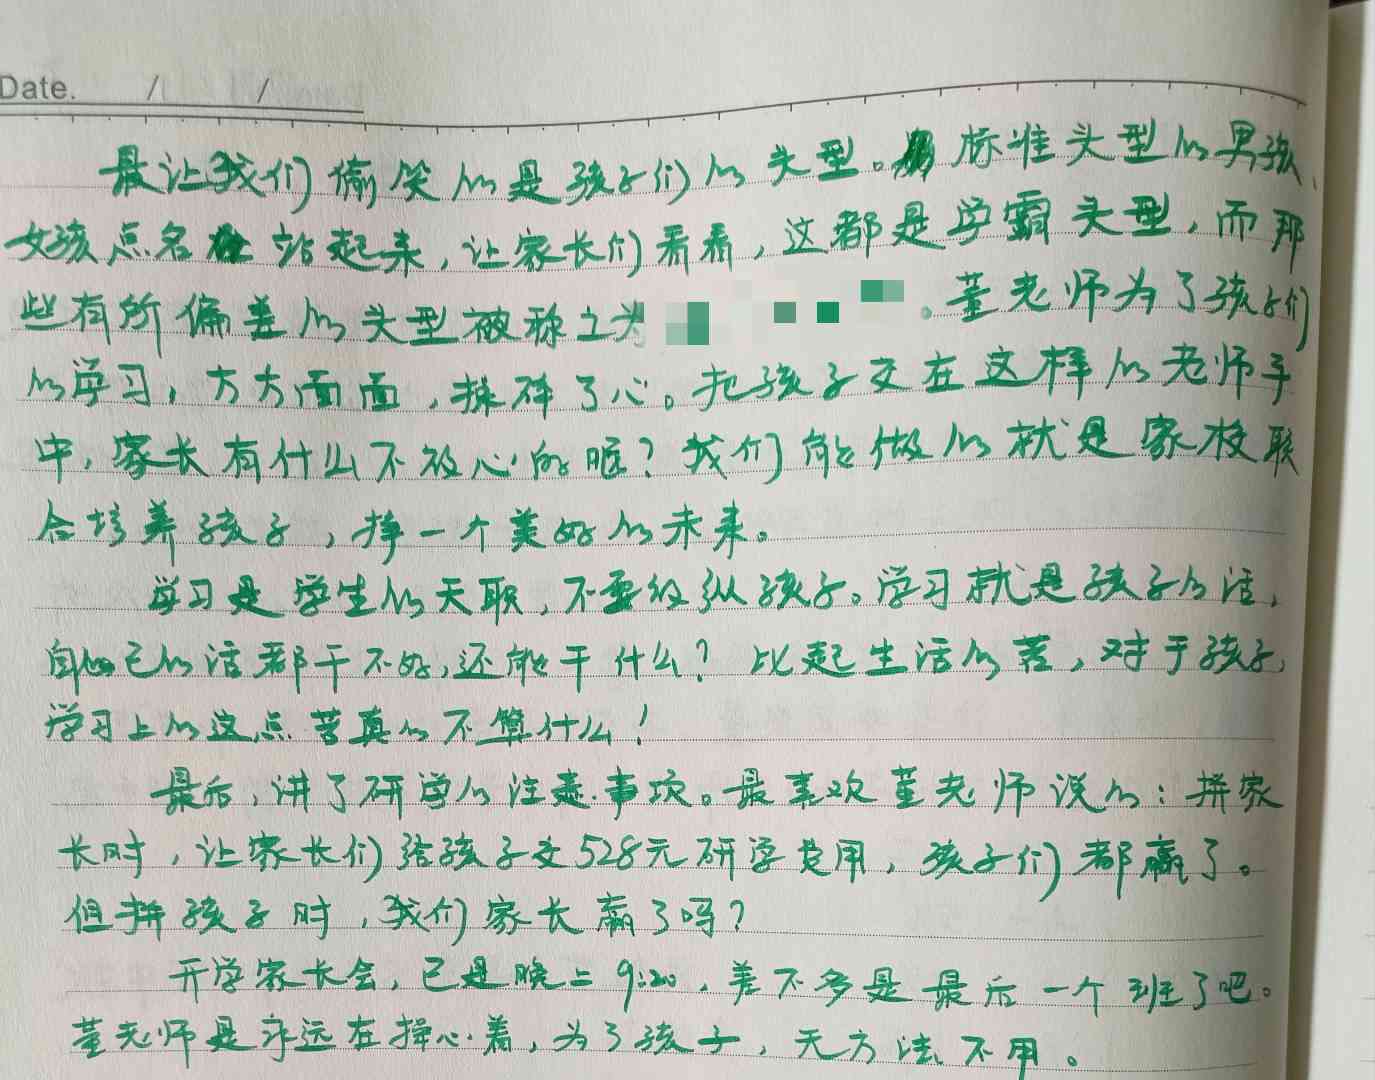 Date. / /
最让我们偷笑的是孩子们的头型。标准头型的男孩、
女孩点名站起来，让家长们看看，这都是学霸头型，而那
些有所偏差的头型被称之为。董老师为了孩子们
的学习，方方面面，操碎了心。把孩子交在这样的老师手
中，家长有什么不放心的呢？我们能做的就是家校联
合培养孩子，挣一个美好的未来。
学习是学生的天职，不要放纵孩子。学习就是孩子的活，
自己的活都干不好，还能干什么？比起生活的苦，对于孩子，
学习上的这点苦真的不算什么！
最后，讲了研学的注意事项。最喜欢董老师说的：拼家
长时，让家长们给孩子交528元研学费用，孩子们都赢了。
但拼孩子时，我们家长赢了吗？
开学家长会，已是晚上9:20，差不多是最后一个班了吧。
董老师是永远在操心着，为了孩子，无方法不用。